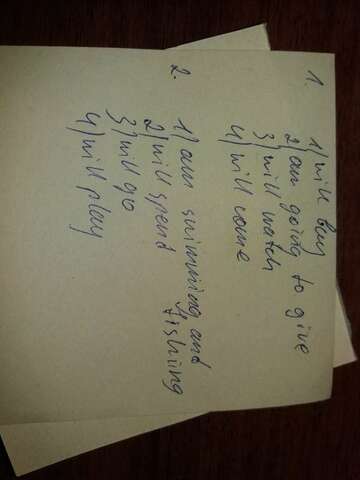 1.
1) will buy
2) am going to give
3) will watch
4) will come
2.
1) am swimming and
fishing
2) will spend
3) will go
4) will play